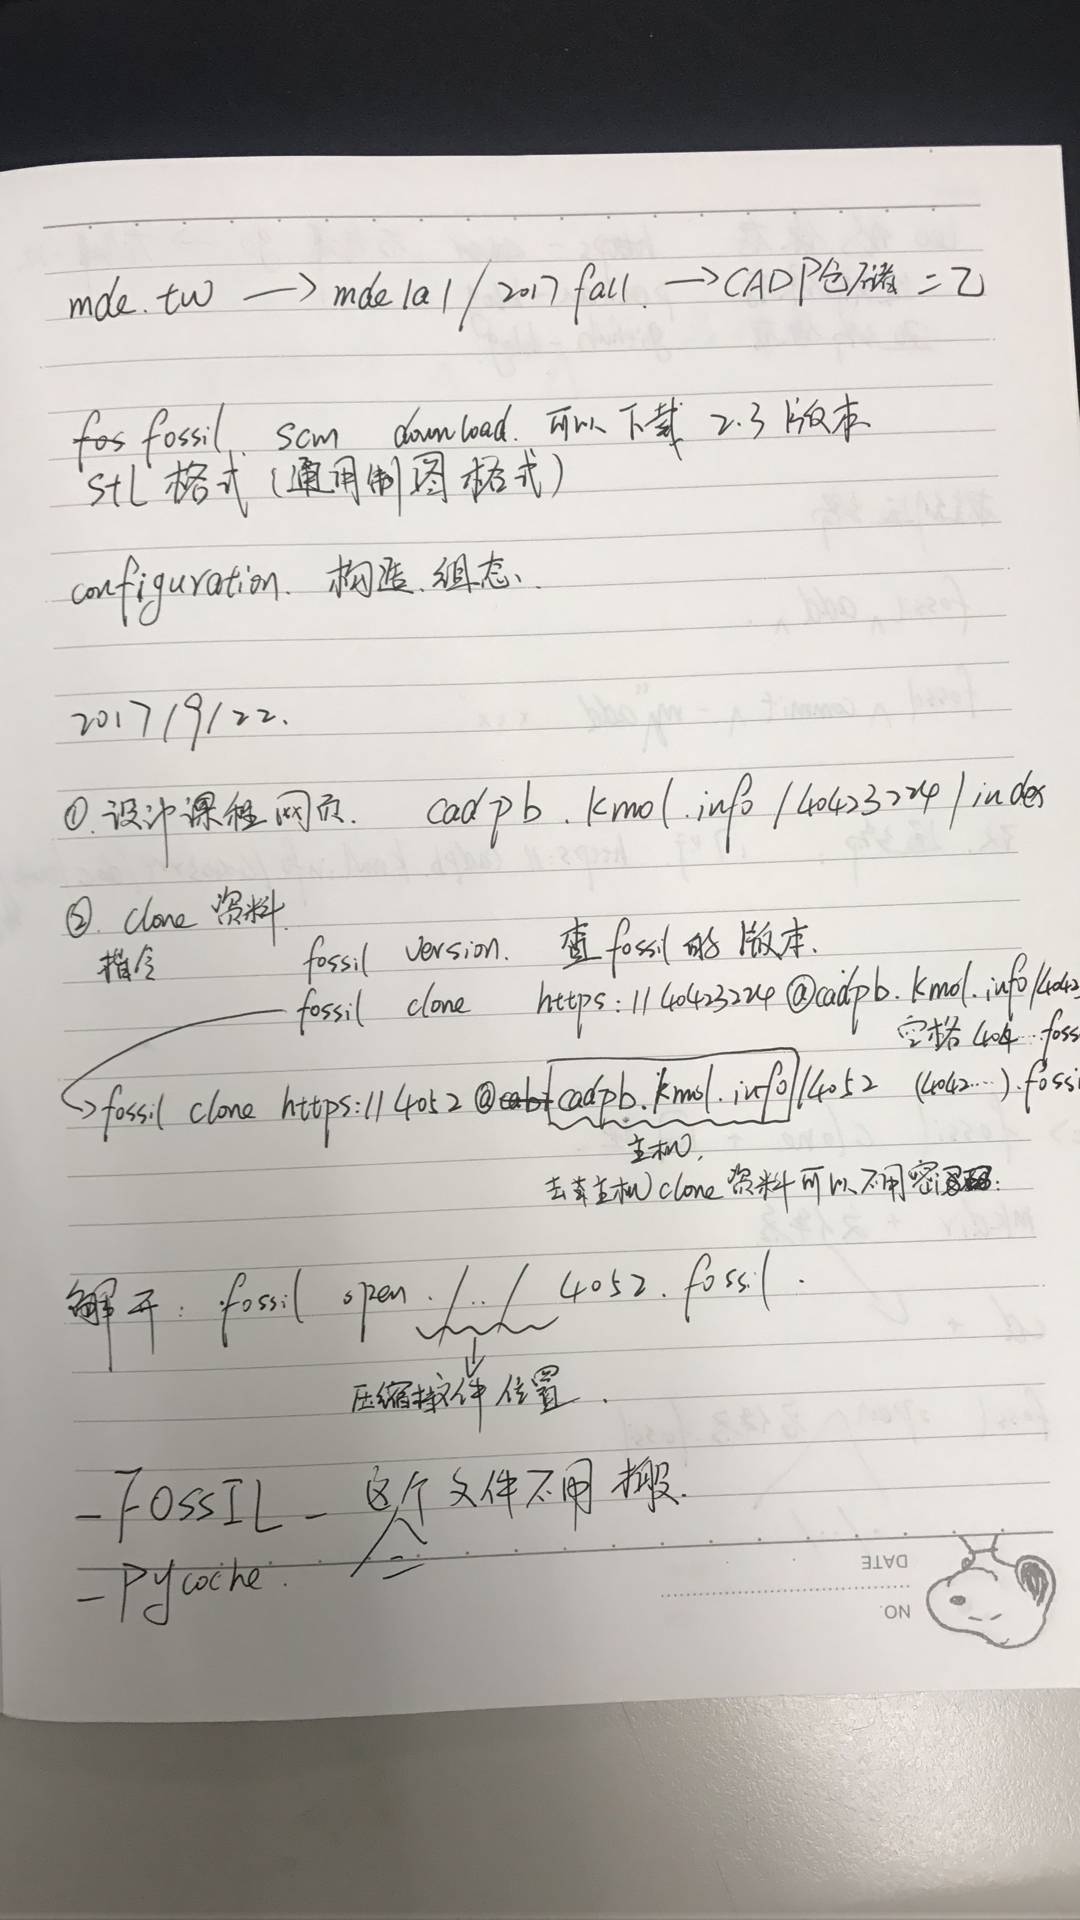 mde.tw → mdela1/2017fall. → CADP仓储 = 乙
fos fossil. scm download. 可以下载 2.3 版本
StL 格式 (通用制图格式)
configuration. 构造、组态、
2017/9/22.
①.设计课程网页. cadpb.kmol.info/40423224/index
②. clone 资料.
指令 fossil version. 查fossil的版本.
fossil clone https://40423224@cadpb.kmol.info/4042
空格 404...foss
→fossil clone https://4052@cadpb.kmol.info/4052 (4042....).fossi
主机,
去本主机clone资料可以不用密
解开: fossil open ./../ 4052.fossil.
↓
压缩文件位置.
_FOSSIL_ 这个文件不用搬.
_Pycache.
DATE
NO.